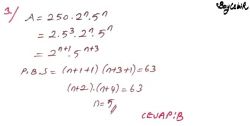 3/ A = 250 . 2ⁿ . 5ⁿ
= 2 . 5³ . 2ⁿ . 5ⁿ
= 2ⁿ⁺¹ . 5ⁿ⁺³
P.B.S = (n+1+1) (n+3+1) = 63
(n+2) . (n+4) = 63
n = 5
CEVAP: B